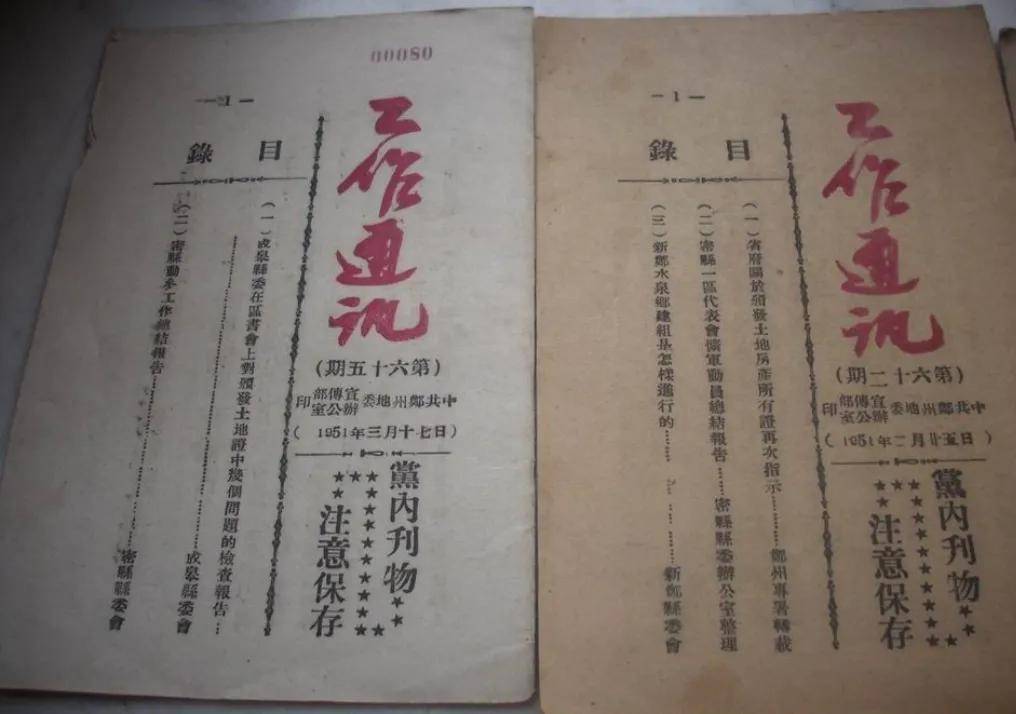 00080
— 1 —
工作通訊
(第六十五期)
中共鄭州地委宣傳部辦公室印
(1951年三月十七日)
黨內刊物
注意保存
目錄
(一)成皋縣委在區書會上對頒發土地證中幾個問題的檢查報告…
………成皋縣委會
(二)密縣動參工作總結報告………
密縣縣委會
— 1 —
工作通訊
(第六十二期)
中共鄭州地委宣傳部辦公室印
(1951年二月廿五日)
黨內刊物
注意保存
目錄
(一)省府關於頒發土地房產所有證再次指示………鄭州專署轉載
(二)密縣一區代表會擴軍動員總結報告………密縣縣委辦公室整理
(三)新鄭水泉鄉建組是怎樣進行的………新鄭縣委會